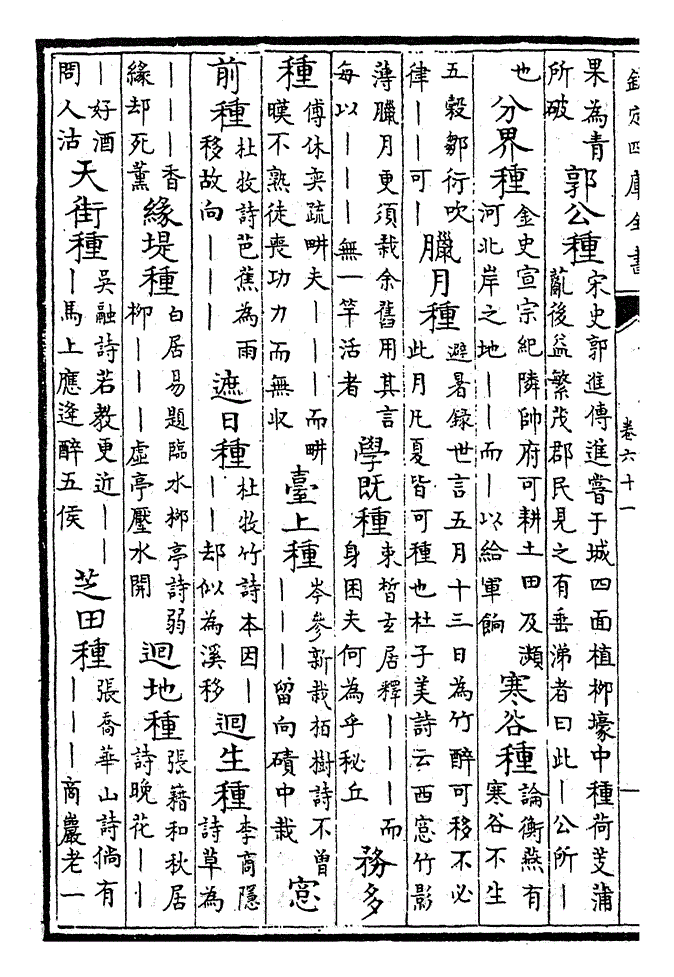 欽定四庫全書
卷六十一
果為青
所破
郭公種
宋史郭進傳進嘗于城四面植栁壕中種荷芰蒲
亂後益繁茂郡民見之有垂涕者曰此丨公所丨
也
分界種
金史宣宗紀隣帥府可耕土田及瀕
河北岸之地丨丨而丨以給軍餉
寒谷種
論衡燕有
寒谷不生
五穀鄒衍吹
律丨丨可丨
臘月種
避暑録世言五月十三日為竹醉可移不必
此月凡夏皆可種也杜子美詩云西窓竹影
薄臘月更須栽余舊用其言
每以丨丨丨無一竿活者
學既種
束晳玄居釋丨丨丨而
身困夫何為乎秘丘
務多
種
傅休奕疏畊夫丨丨丨而畊
暵不熟徒喪功力而無収
臺上種
岑參新栽栢樹詩不曾
丨丨丨留向磧中栽
窓
前種
杜牧詩芭蕉為雨
移故向丨丨丨
遮日種
杜牧竹詩本因丨
丨丨却似為溪移
迴生種
李商隱
詩草為
丨丨丨香
緣却死薰
緣堤種
白居易題臨水栁亭詩弱
栁丨丨丨虛亭壓水開
迴地種
張籍和秋居
詩晚花丨丨
丨好酒
問人沽
天街種
吳融詩若教更近丨丨
丨馬上應逢醉五侯
芝田種
張喬華山詩倘有
丨丨丨商巖老一